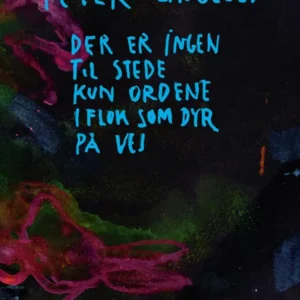 DER ER INGEN
TIL STEDE
KUN ORDENE
I FLOK SOM DYR
PÅ VEJ